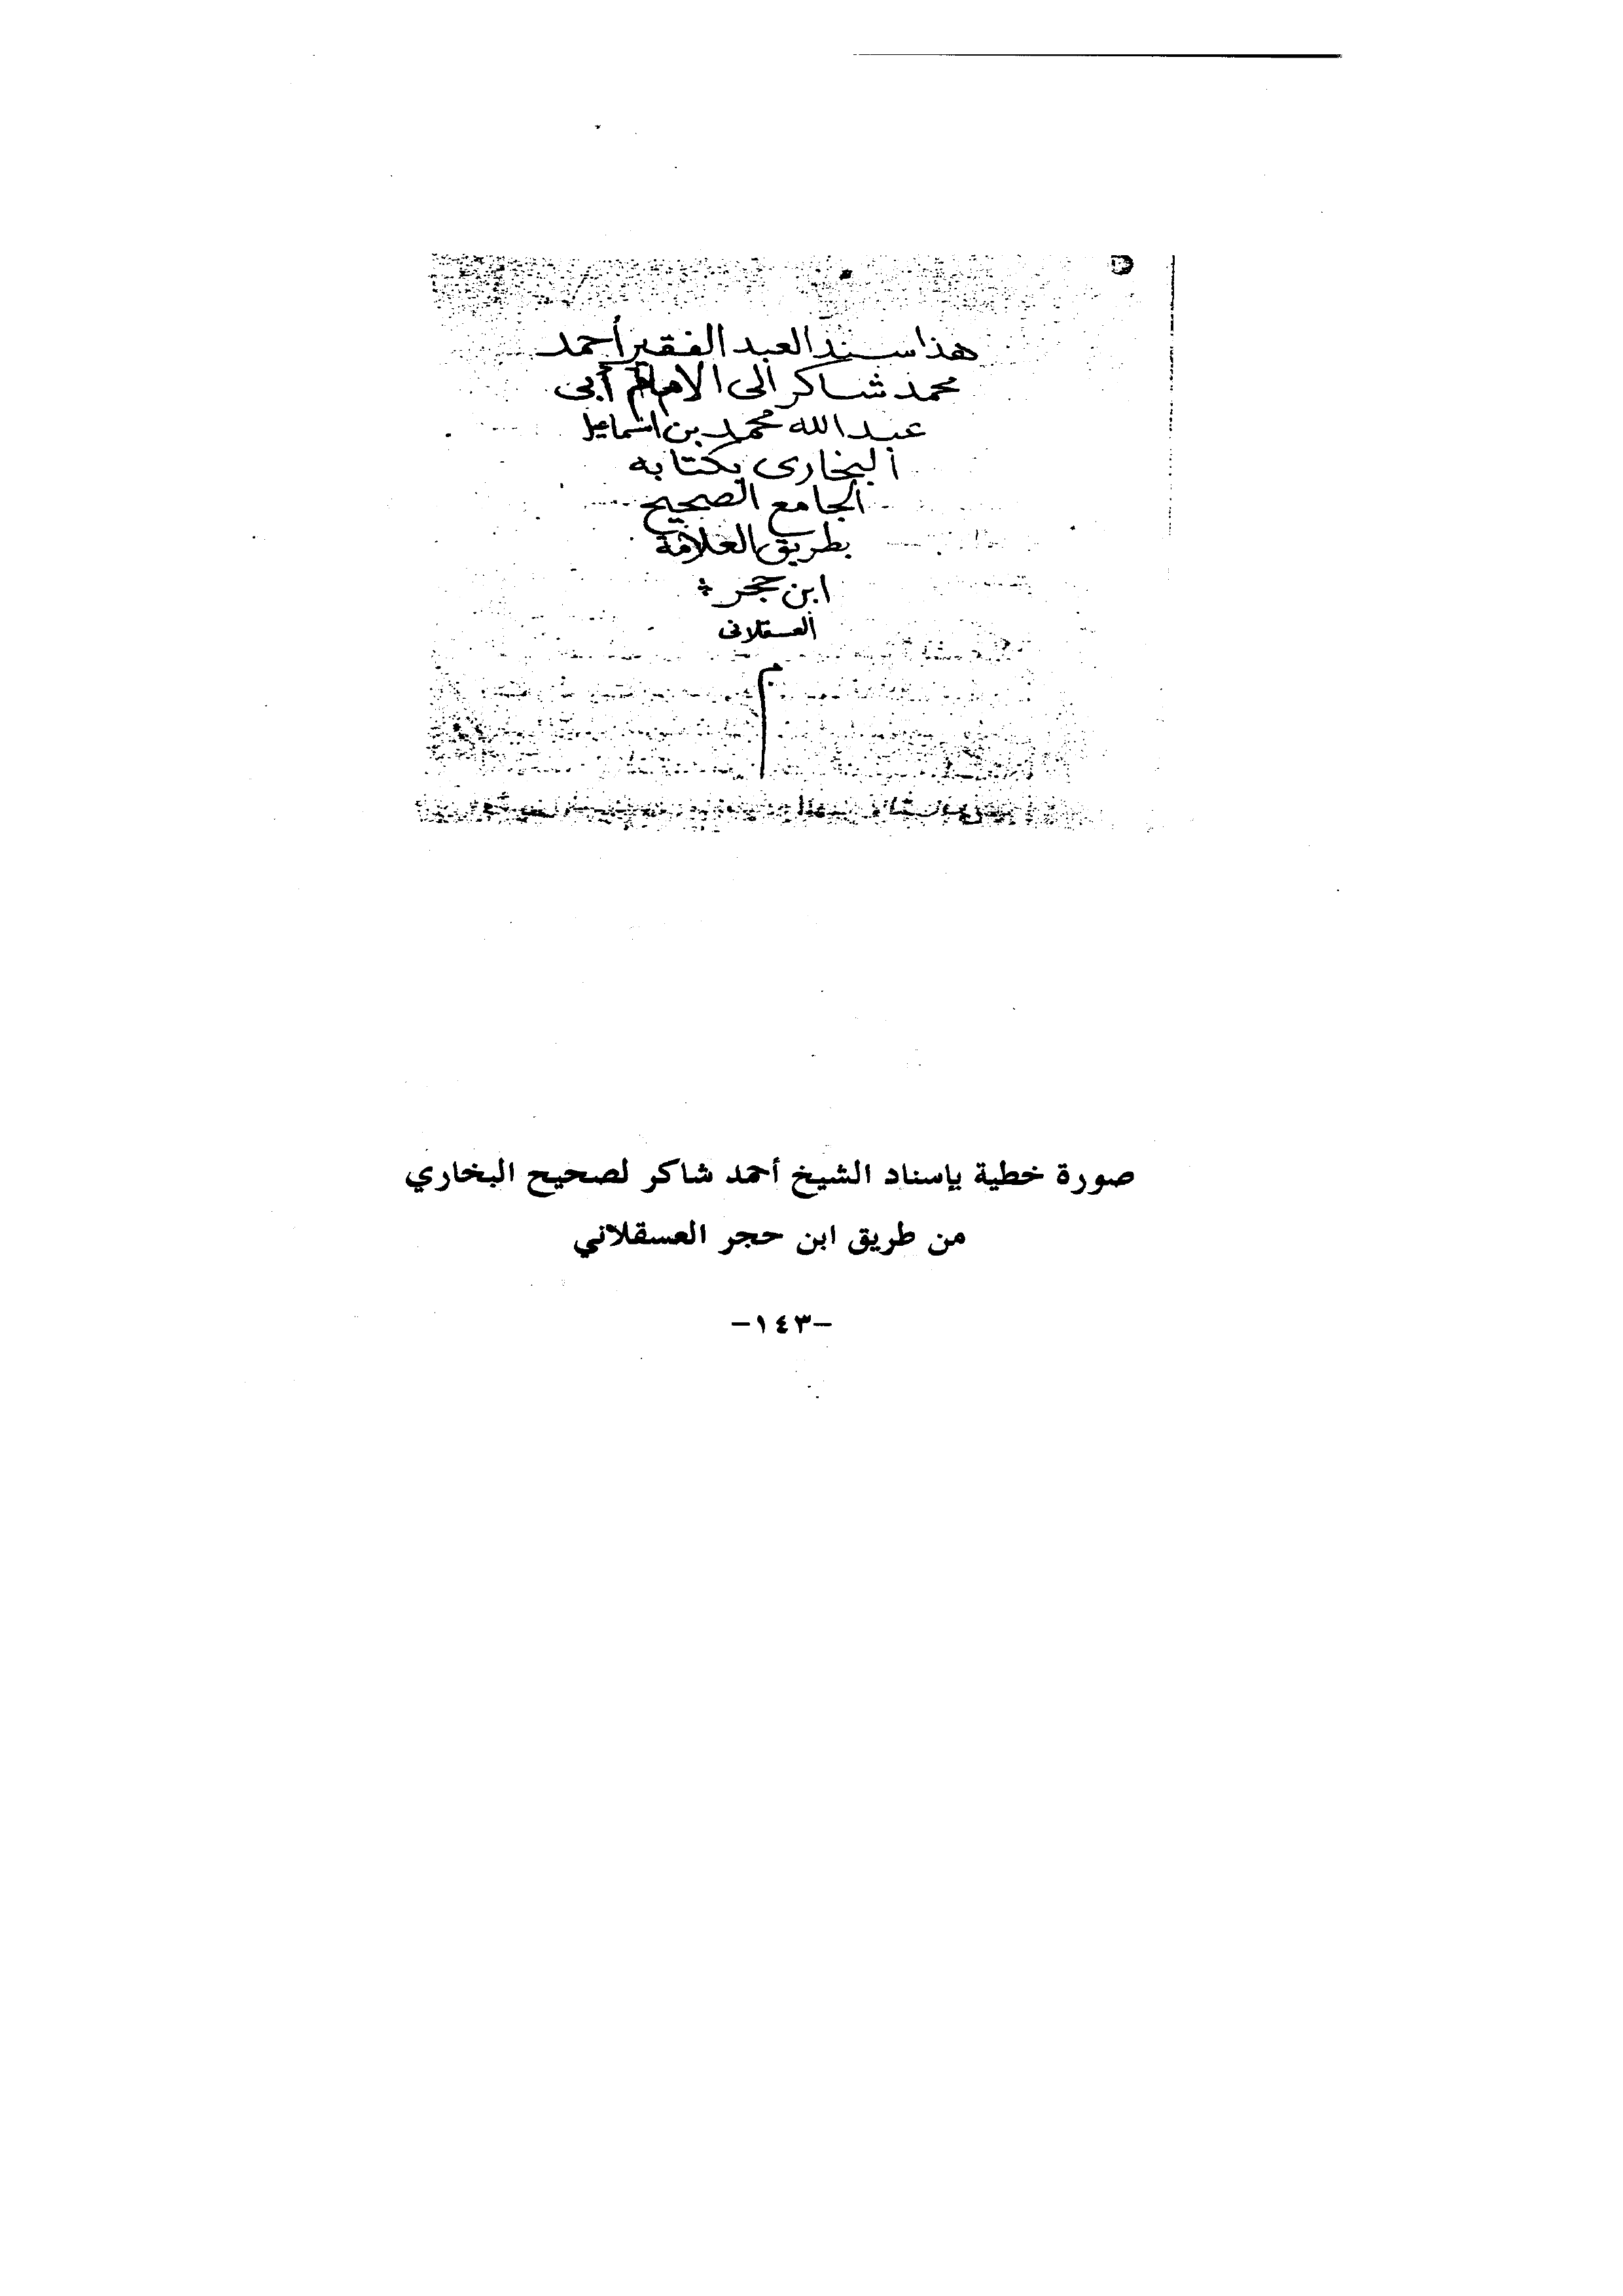 هذا سند العبد الفقير أحمد
محمد شاكر الى الامام أبى
عبد الله محمد بن اسماعيل
البخارى بكتابه
الجامع الصحيح
بطريق العلامة
ابن حجر
العسقلانى
م
صورة خطية بإسناد الشيخ أحمد شاكر لصحيح البخاري
من طريق ابن حجر العسقلاني
-١٤٣-